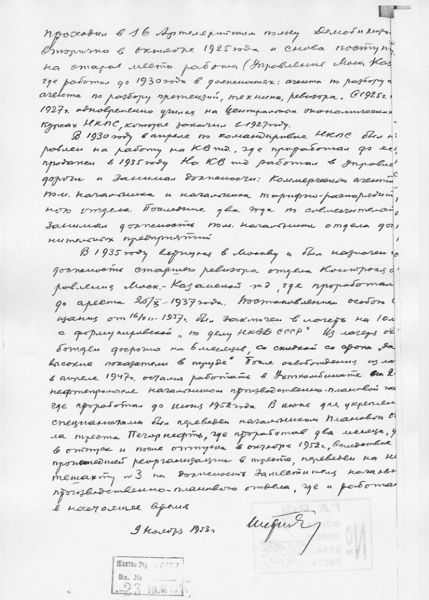 проходил в 16 Артеллерийском полку Демобилизо
вторично в октябре 1925 года и снова поступ
на старое место работы (Управление Моск Каз
где работал до 1930 года в должностях: агента по розыску
агента по разбору претензий, техника, ревизора. С 1925 г.
1927 г. одновременно учился на Центральных экономических
курсах НКПС, которые закончил в 1927 году.
В 1930 году в апреле по командировке НКПС был на
равлен на работу на КВжд, где проработал до ее
продажи в 1935 году На КВжд работал в Управле
дороги и занимал должности: Коммерческого агента
пом. начальника и начальника тарифно-распорядит
ного отдела Последние два года по совместительст
занимал должность пом. начальника отдела до
нительских предприятий
В 1935 году вернулся в Москву и был назначен
должность старшего ревизора отдела Контроля
равления Моск-Казанской жд, где проработал
до ареста 20/X-1937 года. Постановлением особого
щания от 16/XII-1937г. был заключен в лагерь на 10 л
с формулировкой "по делу НКВД СССР" Из лагеря ос
божден досрочно на 6 месяцев, со скидкой со срока "за
высокие показатели в труде" После освобождения из ла
в апреле 1947г. остался работать в Ухткомбинате
нефтепромысле начальником производственно-планового
где проработал до июня 1952 года В июне для укреплен
специалистами был переведен начальником планового от
ла треста Печорнефть, где проработав два месяца, у
в отпуск и после отпуска в октябре 1952г, вследствие
произошедшей реорганизации в тресте, переведен на не
тешахту №3 на должность Заместителя начальн
производственно-планового отдела, где и работаю
в настоящее время
9 Ноября 1953г.
Вх. №
23
№